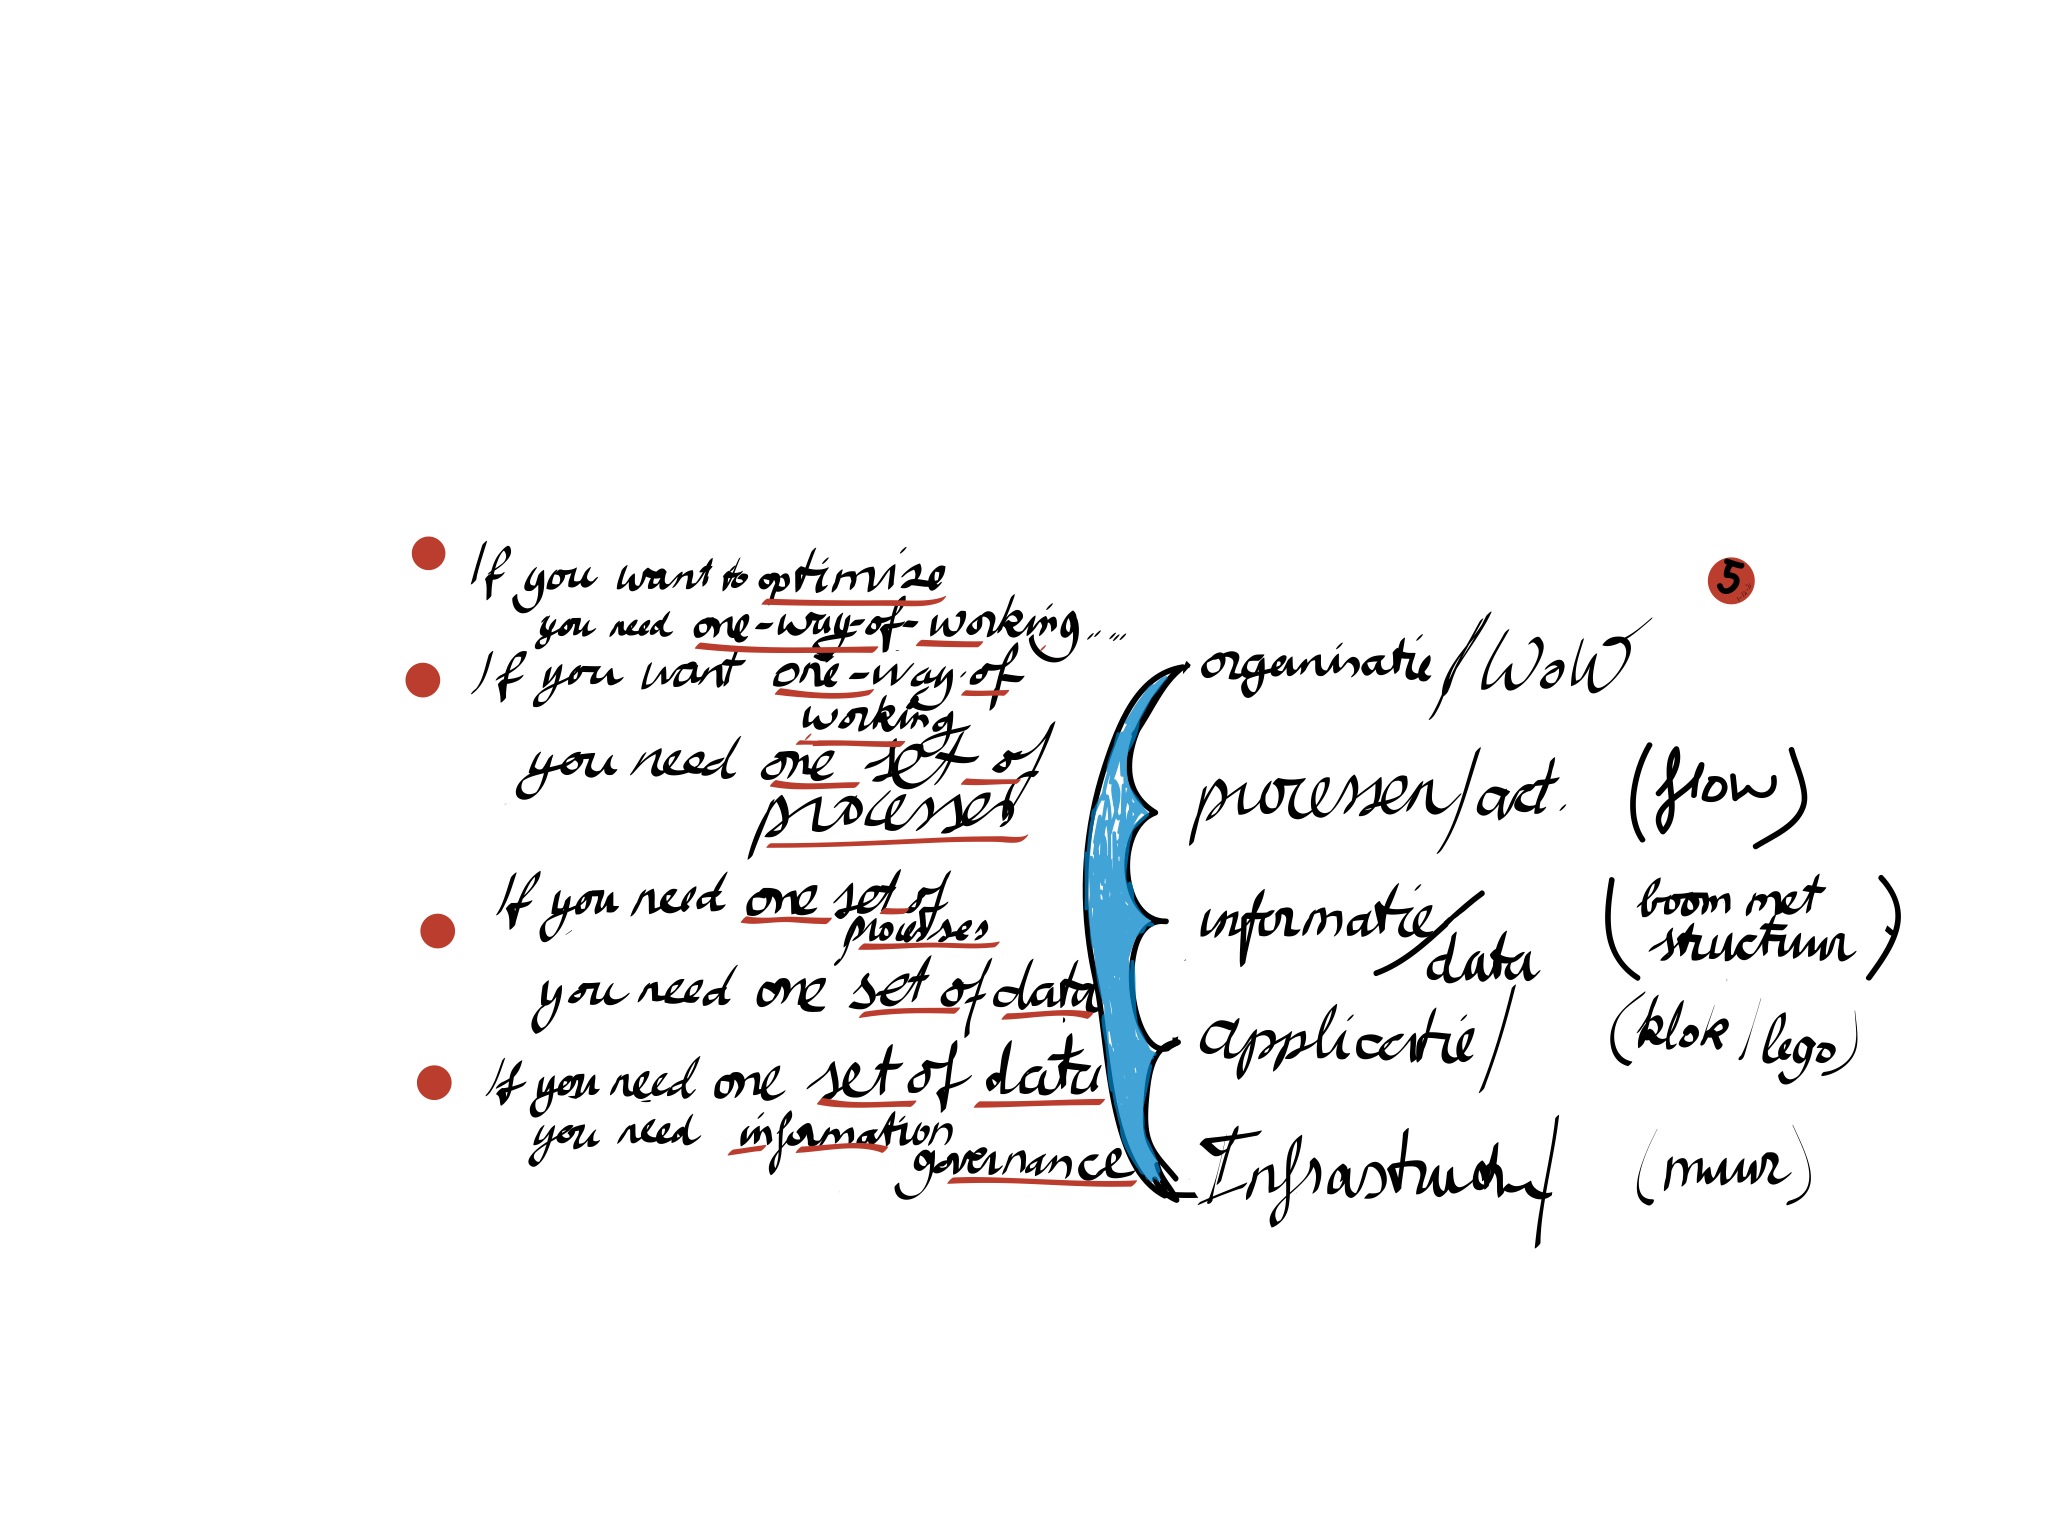 If you want to optimize
you need one-way-of-working....
If you want one-way-of
working
you need one set of
processes
If you need one set of
processes
you need one set of data
If you need one set of data
you need information
governance
5
organisatie / WoW
processen / act. (flow)
informatie / data (boom met
structuur)
applicatie / (klok / lego)
Infrastructuur / (muur)